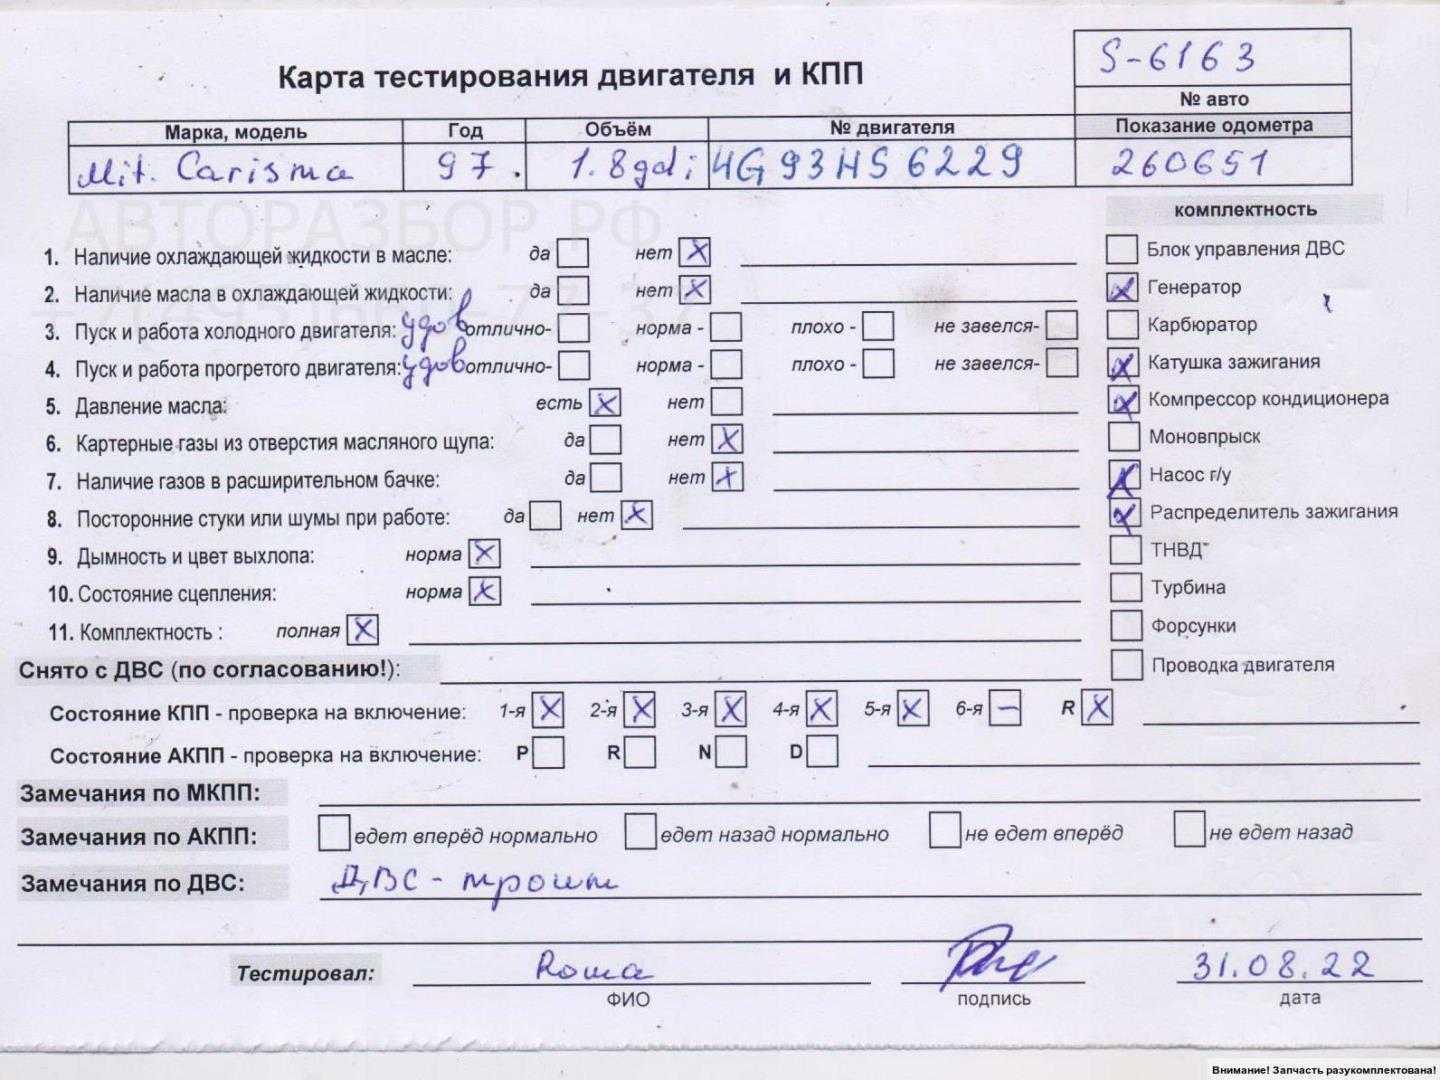 S-6163
Карта тестирования двигателя и КПП
№ авто
Марка, модель Год Объём № двигателя Показание одометра
Mit. Carisma 97. 1.8gdi 4G93HS6229 260651
АВТОРАЗБОР.РФ
комплектность
1. Наличие охлаждающей жидкости в масле: да нет X
Блок управления ДВС
2. Наличие масла в охлаждающей жидкости: да нет X
X Генератор
3. Пуск и работа холодного двигателя: удов отлично- норма - плохо - не завелся-
Карбюратор
4. Пуск и работа прогретого двигателя: удов отлично- норма - плохо - не завелся-
X Катушка зажигания
5. Давление масла: есть X нет
X Компрессор кондиционера
6. Картерные газы из отверстия масляного щупа: да нет X
Моновпрыск
7. Наличие газов в расширительном бачке: да нет X
X Насос г/у
8. Посторонние стуки или шумы при работе: да нет X
X Распределитель зажигания
9. Дымность и цвет выхлопа: норма X
ТНВД
10. Состояние сцепления: норма X
Турбина
11. Комплектность : полная X
Форсунки
Снято с ДВС (по согласованию!):
Проводка двигателя
Состояние КПП - проверка на включение: 1-я X 2-я X 3-я X 4-я X 5-я X 6-я — R X
Состояние АКПП - проверка на включение: P R N D
Замечания по МКПП:
Замечания по АКПП: едет вперёд нормально едет назад нормально не едет вперёд не едет назад
Замечания по ДВС: ДВС - троит
Тестировал: Roma 31.08.22
ФИО подпись дата
Внимание! Запчасть разукомплектована!